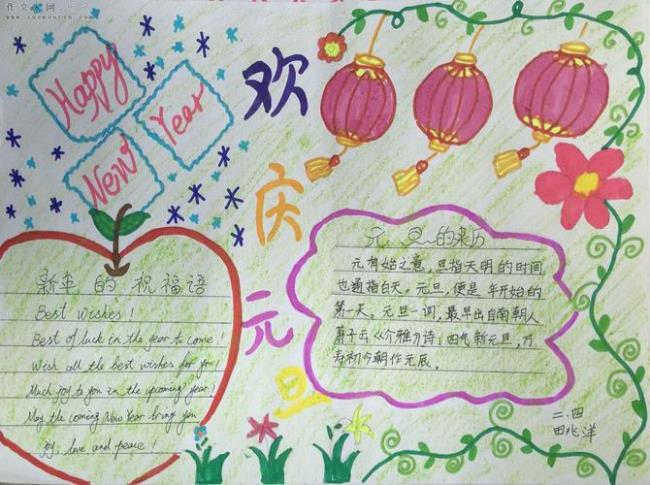 Happy
New
Year
欢
庆
元
旦
新年的祝福语
Best wishes!
Best of luck in the year to come!
Wish all the best wishes for you!
Much joy to you in the upcoming year!
May the coming New Year bring you
joy, love and peace!
元旦的来历
元有始之意,旦指天明的时间
也通指白天。元旦,便是年开始的
第一天。元旦一词,最早出自南朝人
萧子云《介雅》诗:四气新元旦,万
寿初今朝作元辰。
二.四
田兆洋